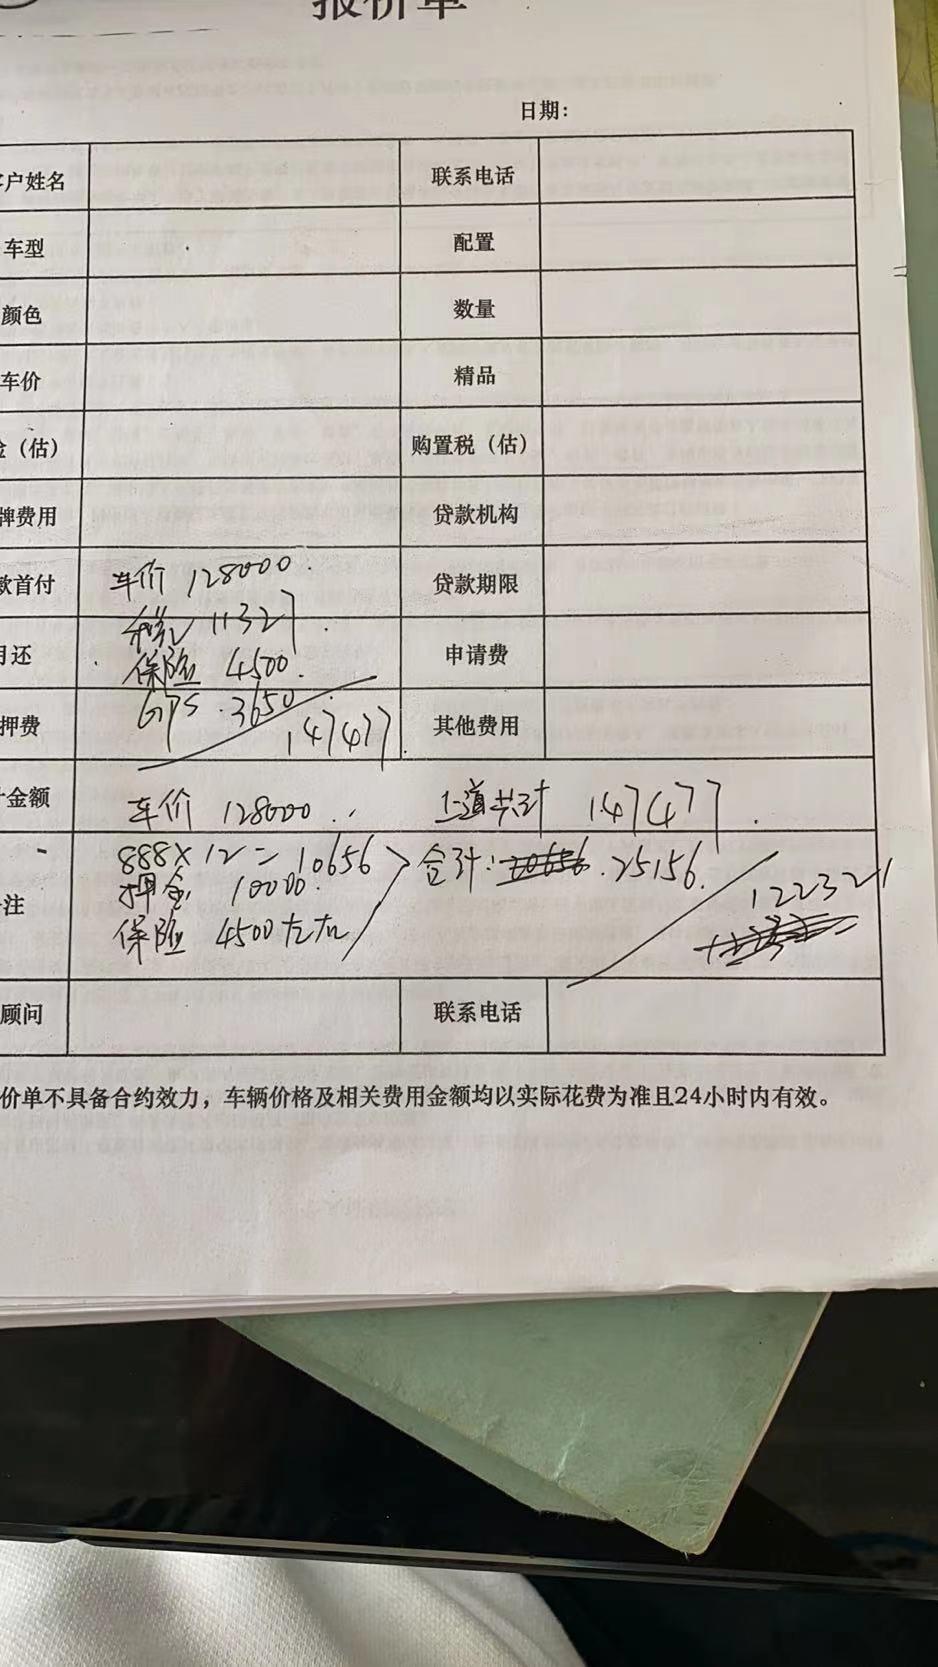 报价单
日期：
客户姓名 联系电话
车型 配置
颜色 数量
车价 精品
险（估） 购置税（估）
牌费用 贷款机构
款首付 车价 128000. 贷款期限
税 11327.
月还 保险 4500. 申请费
押费 GPS. 3650. 其他费用
147477.
计金额 车价 128000.. 上道共计 147477.
888×12=10656 合计：25156. 122321
注 押金 10000.
保险 4500左右
顾问 联系电话
价单不具备合约效力，车辆价格及相关费用金额均以实际花费为准且24小时内有效。